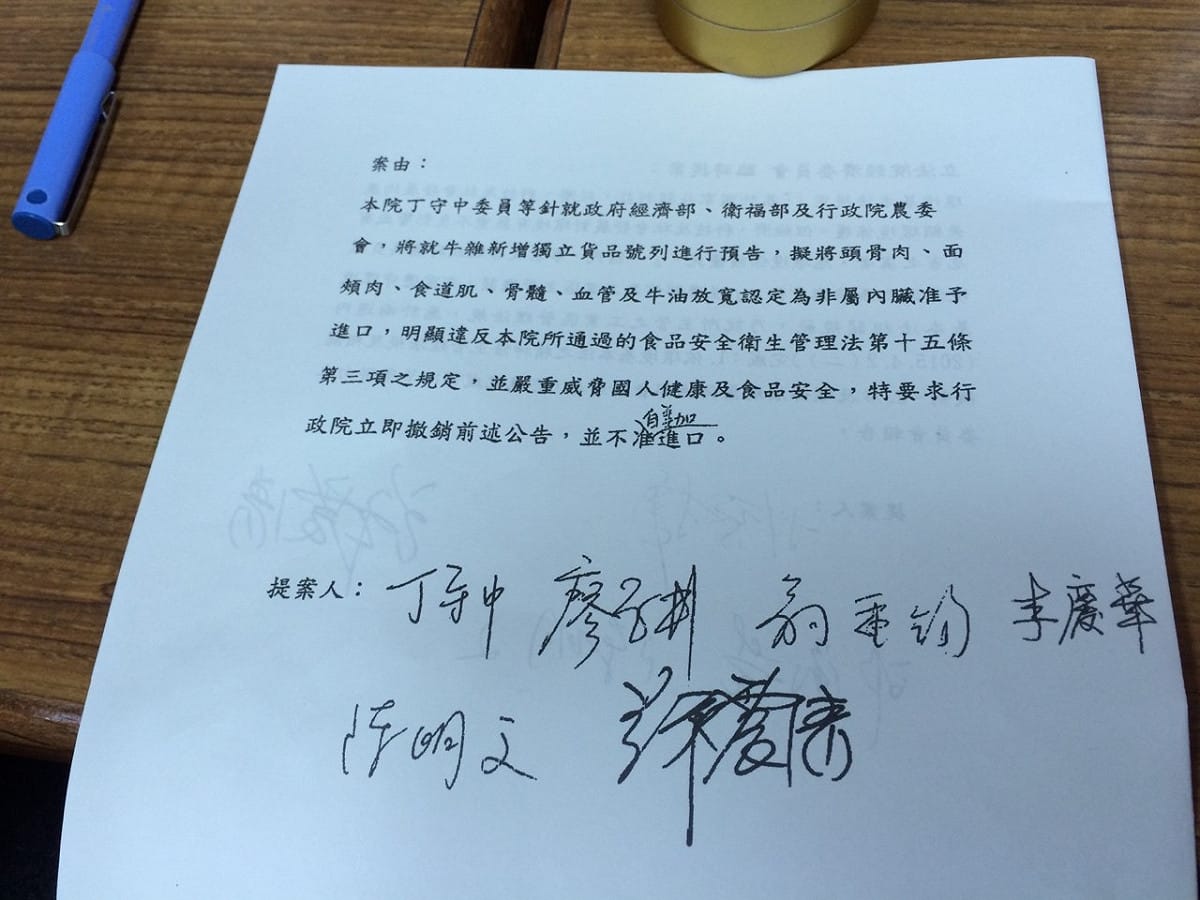 案由：
本院丁守中委員等針就政府經濟部、衛福部及行政院農委
會，將就牛雜新增獨立貨品號列進行預告，擬將頭骨肉、面
頰肉、食道肌、骨髓、血管及牛油放寬認定為非屬內臟准予
進口，明顯違反本院所通過的食品安全衛生管理法第十五條
第三項之規定，並嚴重威脅國人健康及食品安全，特要求行
自美加
政院立即撤銷前述公告，並不准進口。
提案人：丁守中 廖國棟 翁重鈞 李慶華
陳明文